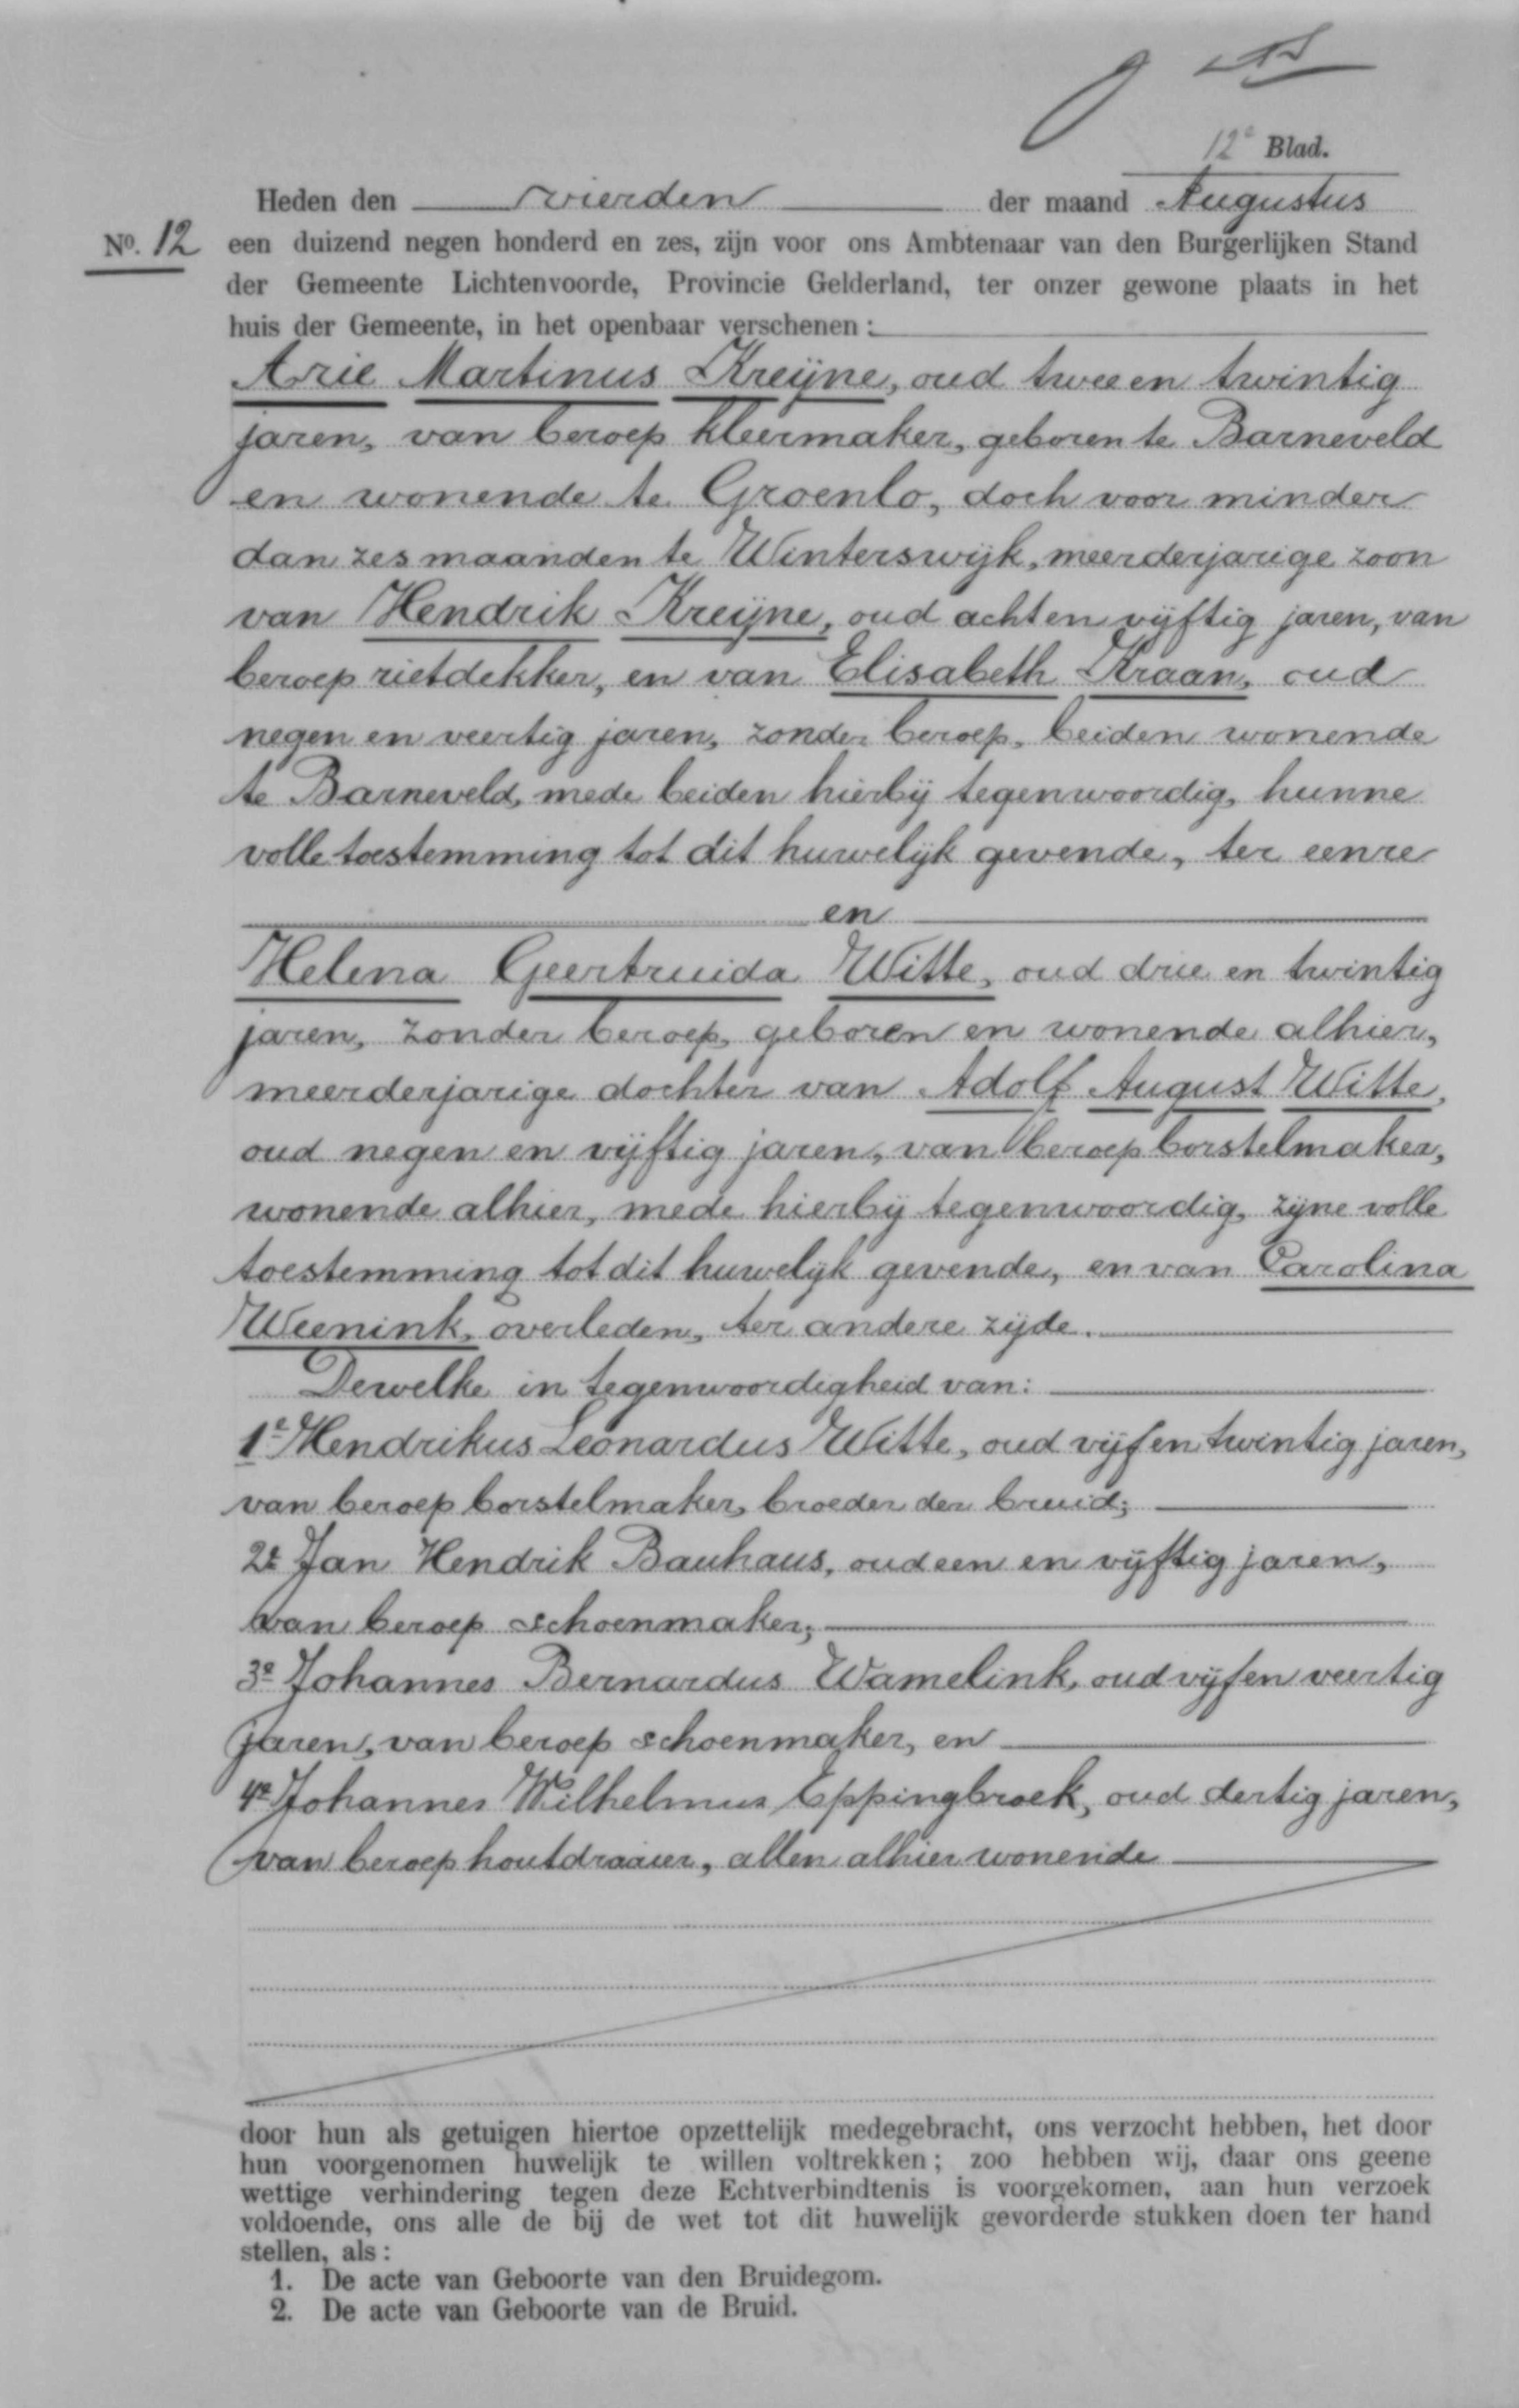 12e Blad.
Heden den vierden der maand Augustus
No. 12 een duizend negen honderd en zes, zijn voor ons Ambtenaar van den Burgerlijken Stand
der Gemeente Lichtenvoorde, Provincie Gelderland, ter onzer gewone plaats in het
huis der Gemeente, in het openbaar verschenen:
Arie Martinus Kreijne, oud twee en twintig
jaren, van beroep kleermaker, geboren te Barneveld
en wonende te Groenlo, doch voor minder
dan zes maanden te Winterswijk, meerderjarige zoon
van Hendrik Kreijne, oud acht en vijftig jaren, van
beroep rietdekker, en van Elisabeth Kraan, oud
negen en veertig jaren, zonder beroep, beiden wonende
te Barneveld, mede beiden hierbij tegenwoordig, hunne
volle toestemming tot dit huwelijk gevende, ter eenre
en
Helena Geertruida Witte, oud drie en twintig
jaren, zonder beroep, geboren en wonende alhier,
meerderjarige dochter van Adolf August Witte,
oud negen en vijftig jaren, van beroep borstelmaker,
wonende alhier, mede hierbij tegenwoordig, zijne volle
toestemming tot dit huwelijk gevende, en van Carolina
Weenink, overleden, ter andere zijde.
Dewelke in tegenwoordigheid van:
1e Hendrikus Leonardus Witte, oud vijf en twintig jaren,
van beroep borstelmaker, broeder der bruid;
2e Jan Hendrik Bauhaus, oud een en vijftig jaren,
van beroep schoenmaker;
3e Johannes Bernardus Wamelink, oud vijf en veertig
jaren, van beroep schoenmaker, en
4e Johannes Wilhelmus Eppingbroek, oud dertig jaren,
van beroep houtdraaier, allen alhier wonende
door hun als getuigen hiertoe opzettelijk medegebracht, ons verzocht hebben, het door
hun voorgenomen huwelijk te willen voltrekken; zoo hebben wij, daar ons geene
wettige verhindering tegen deze Echtverbindtenis is voorgekomen, aan hun verzoek
voldoende, ons alle de bij de wet tot dit huwelijk gevorderde stukken doen ter hand
stellen, als:
1. De acte van Geboorte van den Bruidegom.
2. De acte van Geboorte van de Bruid.